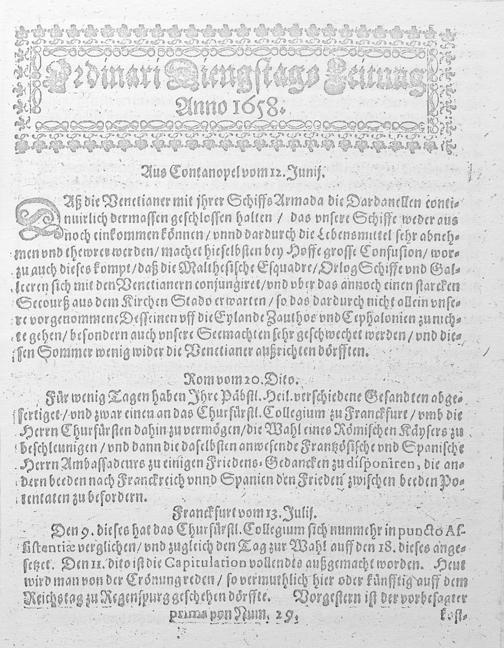 Ordinari Diengstags Zeitung
Anno 1658.
Aus Contanopel vom 12. Junij.
Daß die Venetianer mit jhrer Schiffs Armada die Dardanellen conti-
nuirlich dermassen geschlossen halten / das vnsere Schiffe weder aus
noch einkommen können / vnnd dardurch die Lebensmittel sehr abneh-
men vnd thewrer werden / machet hieselbsten bey Hoffe grosse Confusion / wor-
zu auch dieses kompt / daß die Malthesische Esquadre / Orlog Schiffe vnd Gal-
leeren sich mit den Venetianern conjungiret / vnd vber das annoch einen starcken
Secourß aus dem Kirchen Stado erwarten / so das dardurch nicht allein vnse-
re vorgenommene Desseinen vff die Eylande Zauthos vnd Cephalonien zu nich-
te gehen / besondern auch vnsere Seemachten sehr geschwechet werden / vnd die-
sen Sommer wenig wider die Venetianer außrichten dörfften.
Rom vom 20. Dito.
Für wenig Tagen haben Jhre Päbstl. Heil. verschiedene Gesandten abge-
fertiget / vnd zwar einen an das Churfürstl. Collegium zu Franckfurt / vmb die
Herrn Churfürsten dahin zu vermögen / die Wahl eines Römischen Käysers zu
beschleunigen / vnd dann die daselbsten anwesende Frantzösische vnd Spanische
Herrn Ambassadeurs zu einigen Friedens-Gedancken zu disponiren, die an-
dern beeden nach Franckreich vnnd Spanien den Frieden zwischen beeden Po-
tentaten zu befordern.
Franckfurt vom 13. Julij.
Den 9. dieses hat das Churfürstl. Collegium sich nunmehr in puncto As-
sistentiæ verglichen / vnd zugleich den Tag zur Wahl auff den 18. dieses ange-
setzet. Den 11. dito ist die Capitulation vollendts außgemacht worden. Heut
wird man von der Crönung reden / so vermuthlich hier oder künfftig auff dem
Reichstag zu Regenspurg geschehen dörffte. Vorgestern ist der vorbesagter
prima von Num. 29.
köst-